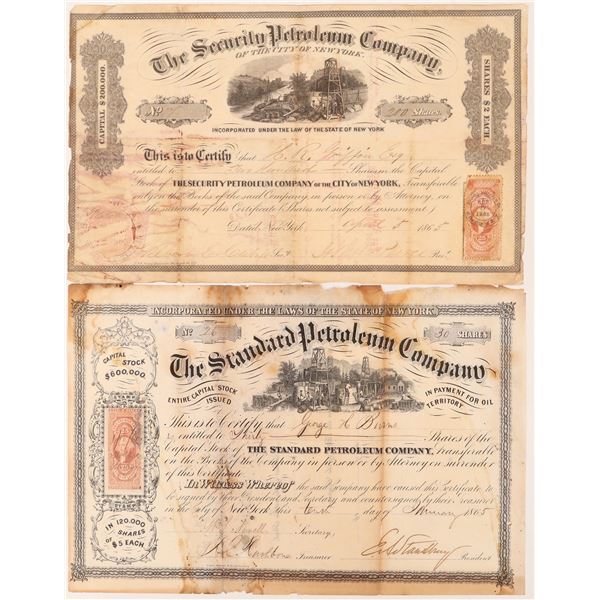 The Security Petroleum Company,
OF THE CITY OF NEW YORK.
CAPITAL $200,000.
SHARES $2 EACH.
No
200 Shares.
INCORPORATED UNDER THE LAW OF THE STATE OF NEW YORK
This is to Certify that
entitled to Shares in the Capital
Stock of THE SECURITY PETROLEUM COMPANY OF THE CITY OF NEW YORK, Transferable
only on the Books of the said Company in person or by Attorney, on
the surrender of this Certificate (Shares not subject to assessment)
Dated, New York April 5 1865
INCORPORATED UNDER THE LAWS OF THE STATE OF NEW YORK
No 26
30 SHARES
The Standard Petroleum Company
CAPITAL STOCK
$600,000.
ENTIRE CAPITAL STOCK ISSUED
IN PAYMENT FOR OIL TERRITORY.
This is to Certify that George H
entitled to Thirty Shares of the
Capital Stock of THE STANDARD PETROLEUM COMPANY, Transferable
on the Books of the Company in person or by Attorney on surrender
of this Certificate
In Witness Whereof the said Company have caused this Certificate to
be signed by their President and Secretary and countersigned by their Treasurer
in the city of New York this tenth day of January 1865
STAMP
IN 120,000
SHARES
OF $5 EACH
Secretary,
Treasurer
President